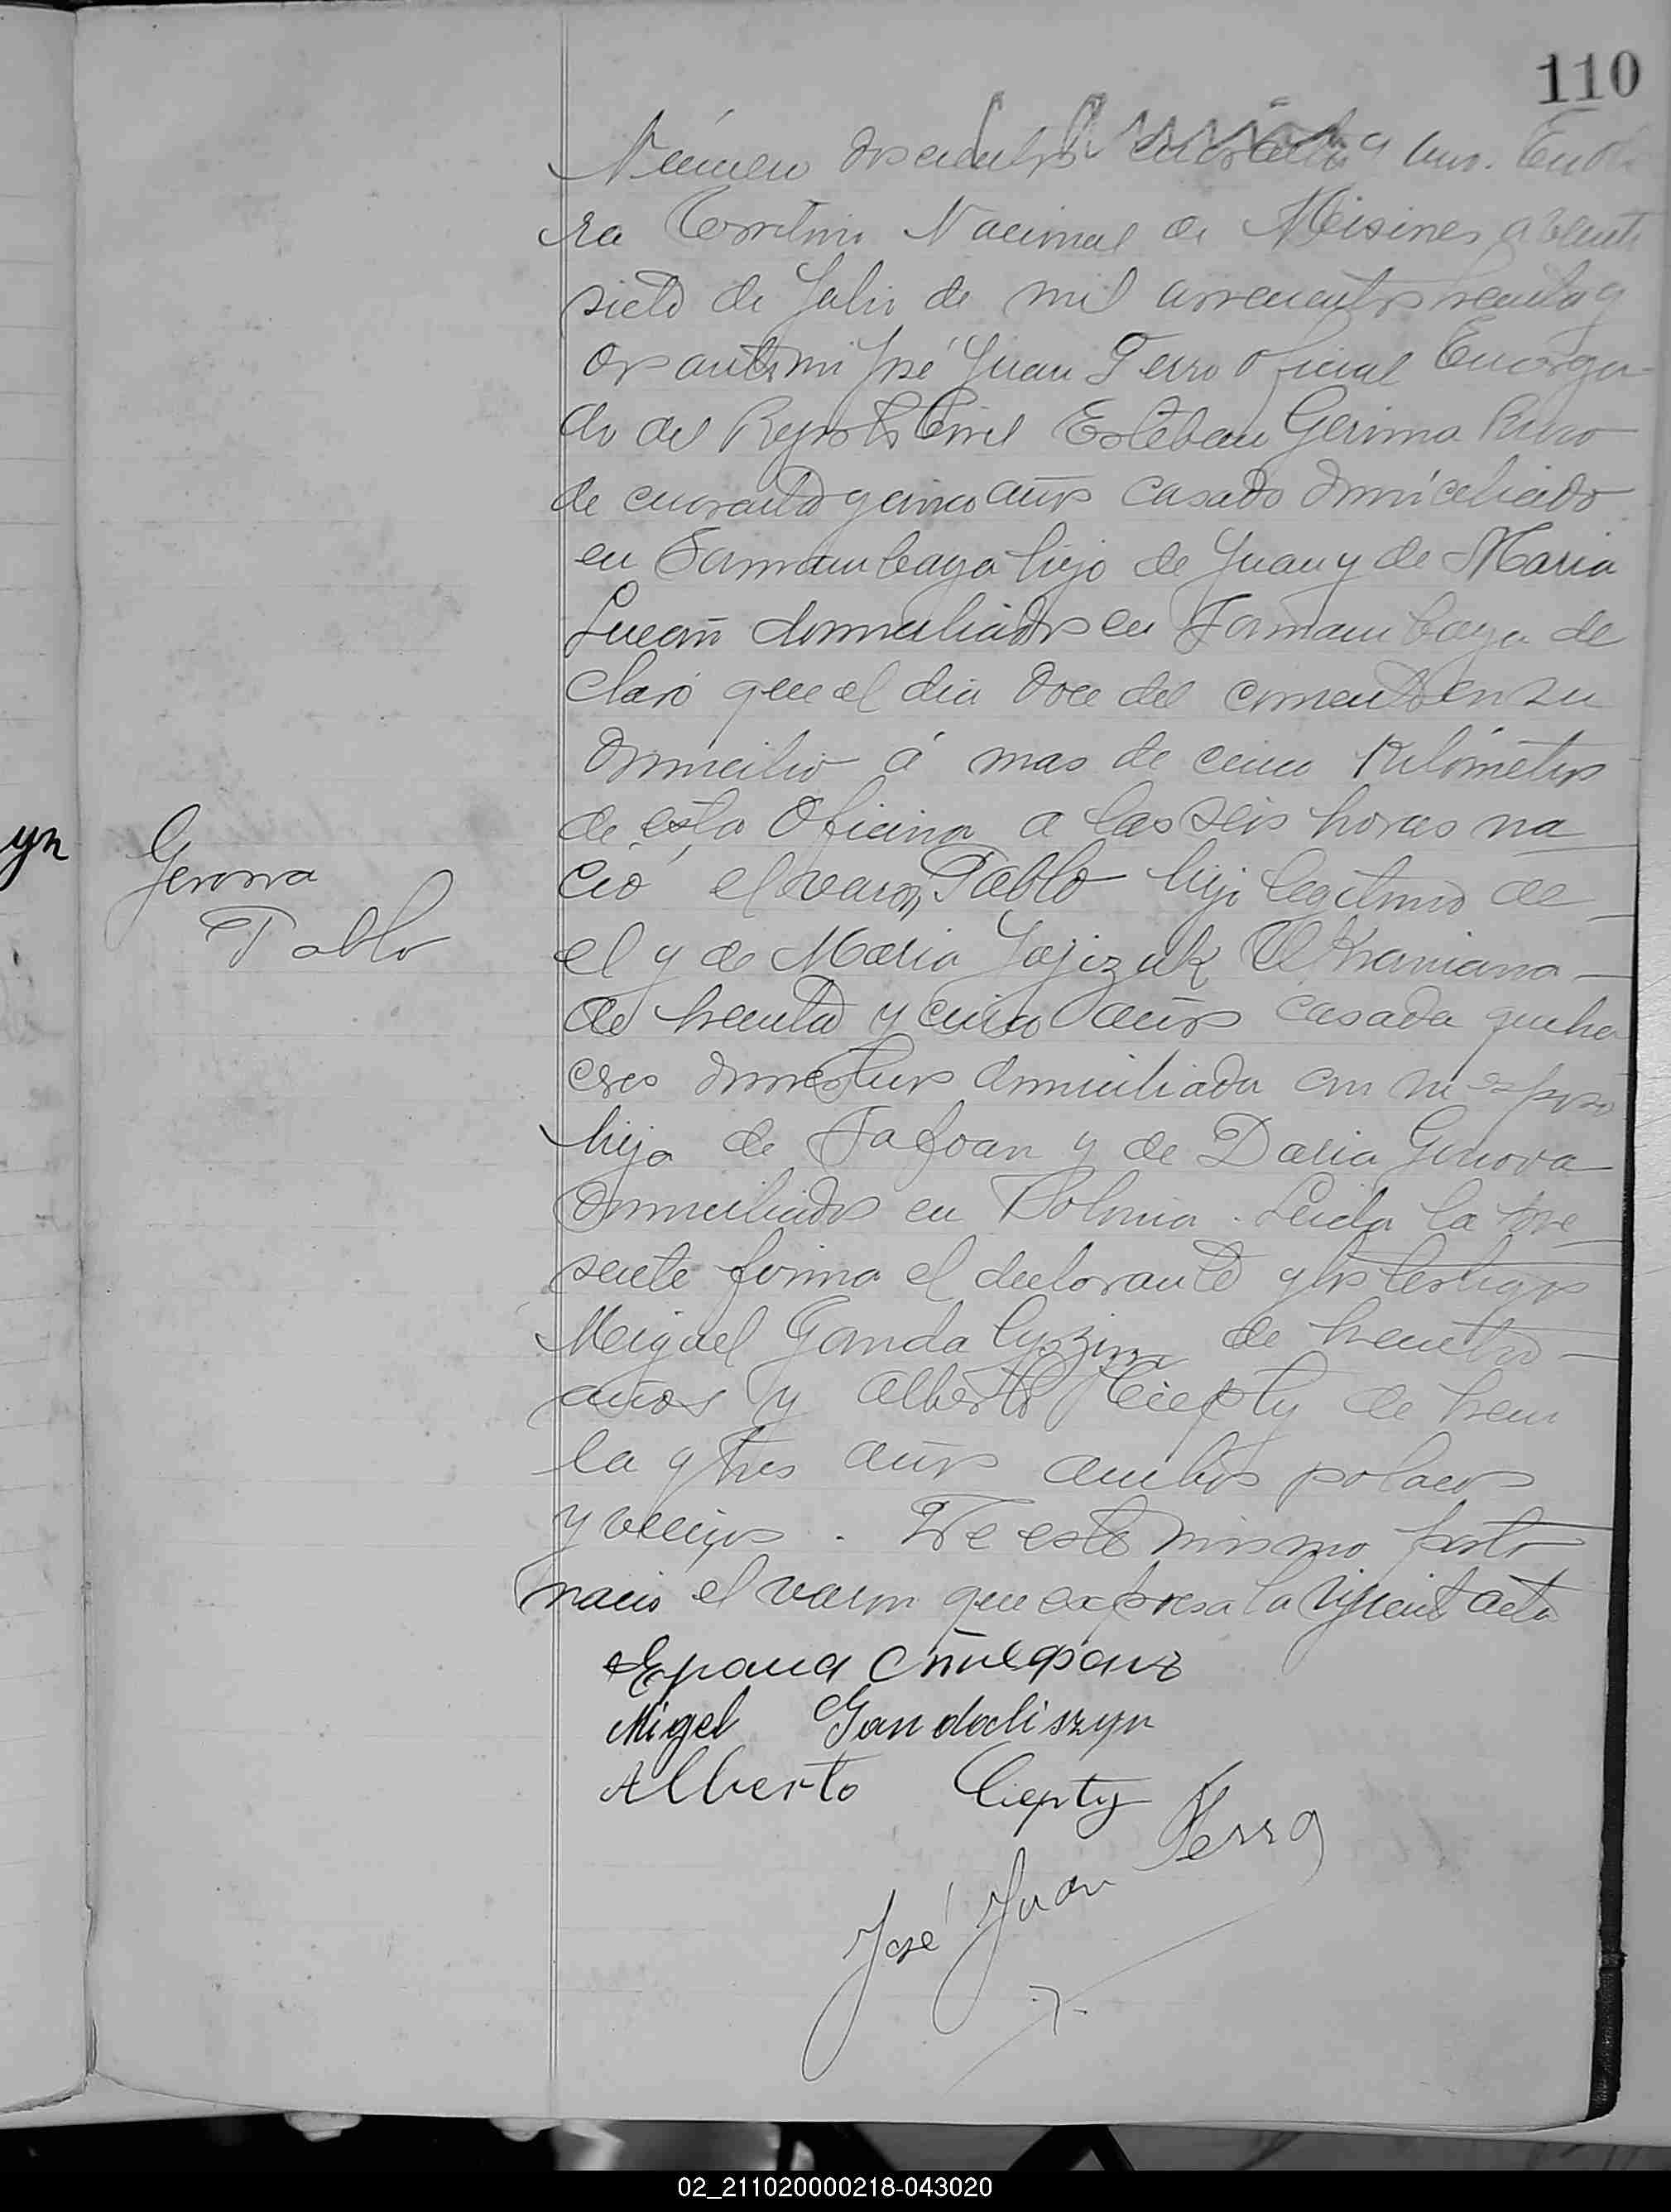 110
Número doscientos cuarenta y uno. En Obe
ra Territorio Nacional de Misiones a veinti
siete de Julio de mil novecientos treinta y
dos ante mi José Juan Ferro Oficial Encarga-
do del Registro Civil Esteban Geroma Ruso
de cuarenta y cinco años casado domiciliado
en Samambaya hijo de Juan y de Maria
domiciliados en Samambaya de
claró que el dia doce del corriente en su
domicilio á mas de cinco Kilómetros
de esta Oficina a las seis horas na
ció el varon Pablo hijo legitimo de
el y de Maria Jajizuk Ukraniana
de treinta y cinco años casada queha
ceres domesticos domiciliada con su esposo
hija de y de Daria Genova
domiciliados en Polonia. Leida la pre
sente firma el declarante y los testigos
Miguel Gandalyszin de treinta
años y Alberto Ciepty de trein
ta y tres años ambos polacos
y vecinos. De este mismo parto
nacio el varon que expresa la siguiente acta
yn
Geroma
Pablo
Migel Gandaliszyn
Alberto Ciepty
José Juan Ferro
02_211020000218-043020